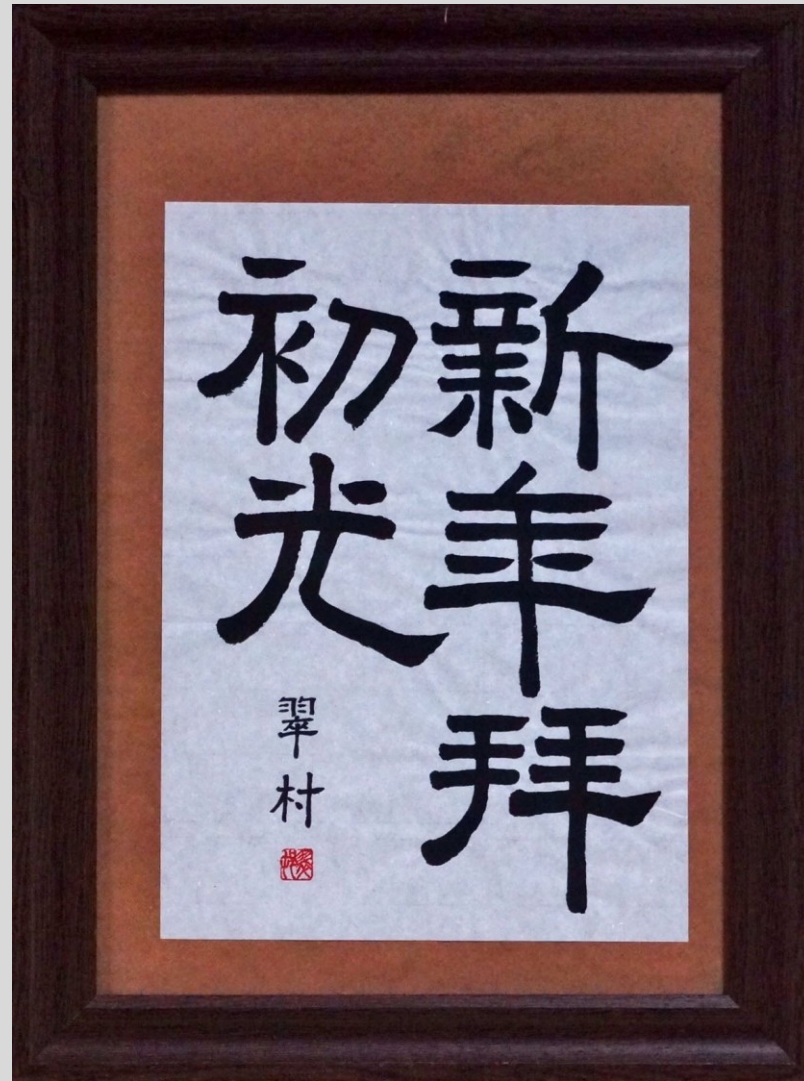 新年拝
初光
翠村